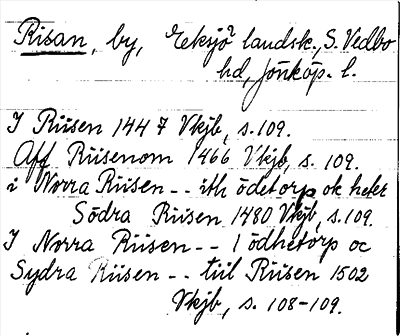 Risan, by, Eksjö landsk., S. Vedbo
hd, Jönköp. l.
I Riisen 1447 Vkjb, s. 109.
Aff Riisenom 1466 Vkjb, s. 109.
i Norra Riisen -- ith ödetorp ok heter
Södra Riisen 1480 Vkjb, s. 109.
I Norra Riisen -- 1 ödhetorp oc
Sydra Riisen -- tiil Riisen 1502
Vkjb, s. 108-109.